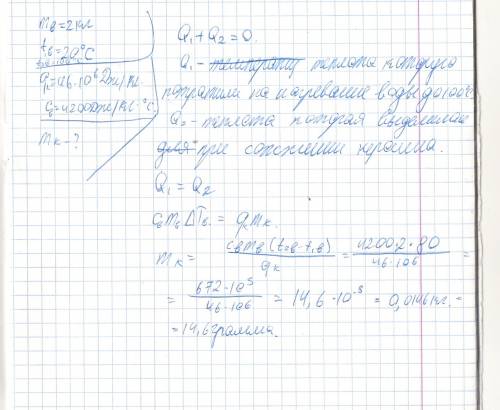 mв=2кг
tв=20°C
qк=46·10⁶Дж/кг
cв=4200Дж/кг·°C
mк-?
Q₁+Q₂=0.
Q₁- температу теплота которую
потратили на нагревание воды до 100°C
Q₂- теплота которая выделилась
для при сожжении керосина.
Q₁=Q₂
cвmвΔTв=qкmк.
mк= cвmв(t₂в-t₁в)/qк = 4200·2·80/46·10⁶ =
= 672·10³/46·10⁶ = 14,6·10⁻³ = 0,0146кг.=
=14,6грамма.